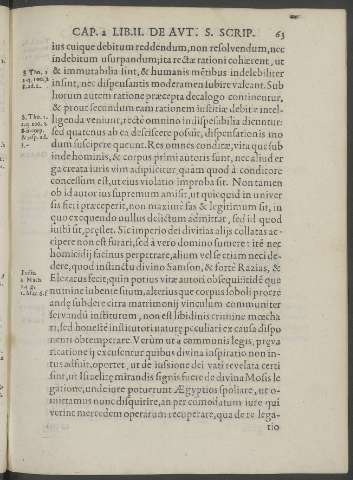 CAP. 2 LIB. II. DE AVT. S. SCRIP. 63
ius cuique debitum reddendum, non resolvendum, nec
indebitum usurpandum; ita rectæ rationi cohærent, ut
& immutabilia sint, & humanis mẽtibus indelebiliter
insint, nec dispensantis moderamen iubire valeant. Sub
horum autem ratione præcepta decalogo continentur,
& prout secundum eam rationem iustitiæ debitæ intel-
ligenda veniunt, rectè omnino indispẽsabilia dicuntur:
sed quatenus ab ea desciscere possũt, dispensationis mo
dum suscipere queunt. Res omnes conditæ, vita quæ sub
inde hominis, & corpus primi autoris sunt, nec aliud er
ga creata iuris vim adipiicitur, quam quod à conditore
concessum est, ut eius violatio improba sit. Non tamen
ob id autor ius supremum amisit, ut quicquid in univer
sis fieri præceperit, non maximè fas & legitimum sit, in
quo exequendo nullus delictum admittat, sed id quod
iussti sit, præstet. Sic imperio dei divitias alijs collatas ac-
cipere non est furari, sed à vero domino sumere: itẽ nec
homicidij facinus perpetrare, alium vel se etiam neci de-
dere, quod instinctu divino Samson, & fortè Razias, &
Eleazarus fecit; quin potius vitæ autori obsequi:itidẽ quæ
numine iubente suum, alterius quæ corpus soboli procre
andę subdere citra matrimonij vinculum communiter
servandũ institutum, non est libidinis crimine mœcha
ri, sed honestè institutori naturę peculiari ex causa dispo
nenti obtemperare. Verùm ut à communis legis, præva
ricatione ij excusentur quibus divina inspiratio non in-
tus adsuit, oportet, ut de iussione dei vati revelata certi
sint, ut Israelitę mirandis signis fuere de divina Mosis le
gatione, unde iure potuerunt Ægyptios spoliare, ut o-
mittamus nunc disquirere, an per com̃odatum iure qui
verint mercedem operarum recuperare, qua de re lega-
tio
S. Tho. 1
S. Tho. 1.
Iudic.
2. Mach.
1. Mac. 6.